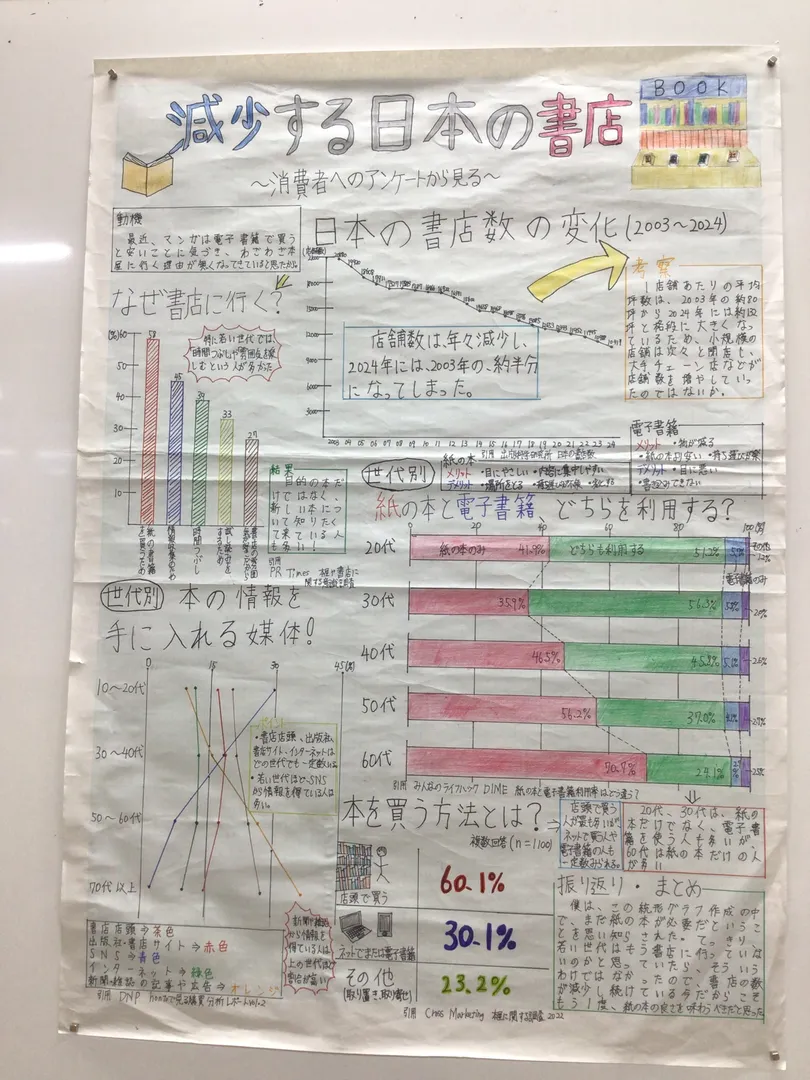 減少する日本の書店
BOOK
～消費者へのアンケートから見る～
動機
最近、マンガは電子書籍で買う
と安いことに気づき、わざわざ本
屋に行く理由が無くなってきていると思ったから。
日本の書店数の変化(2003～2024)
店舗数は、年々減少し、
2024年には、2003年の、約半分
になってしまった。
18000
15000
12000
9000
6000
3000
2003 04 05 06 07 08 09 10 11 12 13 14 15 16 17 18 19 20 21 22 23 24
考察
1店舗あたりの平均
坪数は、2003年の約80
坪から2024年には約132
坪と格段に大きくなっ
ているため、小規模の
店舗は次々と閉店し、
大手チェーン店などが
店舗数を増やしていっ
たのではないか。
なぜ書店に行く?
(%)60
50
40
30
20
10
58
45
39
33
27
特に若い世代では、
時間つぶしや雰囲気を楽し
むという人が多かった
紙の書籍
を買うため
情報収集のため
時間つぶし
するため
結果
目的の本だ
けではなく、
新しい本につ
いて知りたく
て来ている人
も多い!
引用
PR Times
電子書籍
メリット
デメリット
紙の本
メリット ・目にやさしい ・内容に集中しやすい
デメリット ・場所をとる
世代別
紙の本と電子書籍、どちらを利用する?
0 20 40 60 80 100(%)
20代 紙の本のみ 41.9% どちらも利用する 51.2%
その他
電子書籍のみ
30代 35.9% 56.3%
40代 46.5% 45.8%
50代 56.2% 37.0%
60代 70.7% 24.1%
引用 みんなのライフハック DIME 紙の本と電子書籍利用率はどう違う?
20代、30代は、紙の
本だけでなく、電子書
籍を使う人も多いが、
60代は紙の本だけの人
が多い
世代別 本の情報を
手に入れる媒体!
0 15 30 45(%)
10～20代
30～40代
50～60代
70代以上
ポイント
・書店店頭、出版社、
書店サイト、インターネットは
どの世代でも一定数いる。
・若い世代ほどSNS
から情報を得ている人は
多い。
新聞や雑誌
から情報を
得ている人は
上の世代ほど
割合が高い
書店店頭⇒茶色
出版社・書店サイト⇒赤色
SNS⇒青色
インターネット⇒緑色
新聞・雑誌の記事や広告⇒オレンジ
引用 DNP hontoで見る購買分析レポートVol.2
本を買う方法とは?
複数回答(n=1100)
店頭で買う
人が最も多いが、
ネットで買う人や
電子書籍の人も
一定数みられる。
店頭で買う 60.1%
ネットでまたは電子書籍 30.1%
その他
(取り置き,取り寄せ) 23.2%
引用 Cross Marketing 本に関する調査 2022
振り返り・まとめ
僕は、この統計グラフ作成の中
で、まだ紙の本が必要だというこ
とを思い知らされた。てっきり、
若い世代はもう書店に行っていな
いのかと思っていたら、そういう
わけではなかったので、書店の数
が減少し続けている今だからこそ
もう1度、紙の本の良さを味わうべきだと思った